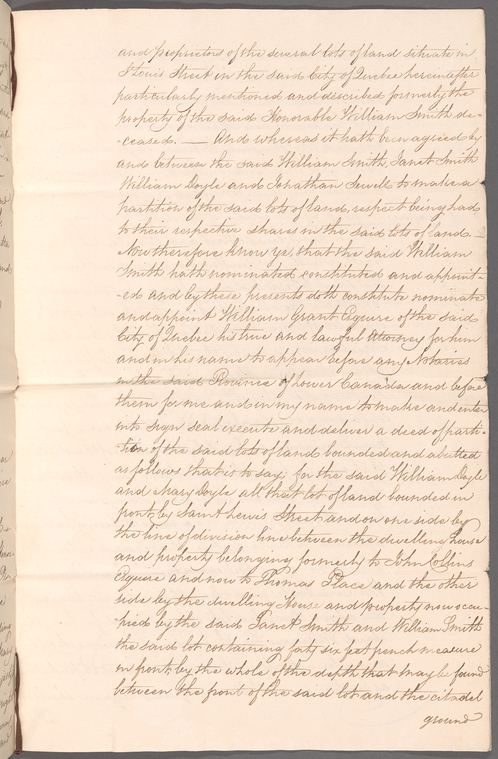 and proprietors of the several lots of land situate in
St Louis Street in the said City of Quebec hereinafter
particularly mentioned and described formerly the
property of the said Honorable William Smith de-
-ceased. — And whereas it hath been agreed by
and between the said William Smith, Janet Smith
William Doyle and Jonathan Sewell to make a
partition of the said lots of land, respect being had
to their respective shares in the said lots of land. —
Now therefore know ye, that the said William
Smith hath nominated constituted and appoint-
-ed and by these presents doth constitute nominate
and appoint William Grant Esquire of the said
City of Quebec his true and lawful Attorney for him
and in his name to appear before any Notaries
in the said Province of Lower Canada and before
them for me and in my name to make and enter
into sign seal execute and deliver a deed of parti-
-tion of the said lots of land bounded and abutted
as follows that is to say; for the said William Doyle
and Mary Doyle all that lot of land bounded in
front by Saint Lewis Street and on one side by
the line of division line between the dwelling house
and property belonging formerly to John Collins
Esquire and now to Thomas Place and the other
side by the dwelling House and property now occu-
-pied by the said Janet Smith and William Smith
the said lot containing forty six feet french measure
in front, by the whole of the depth that may be found
between the front of the said lot and the citadel
ground